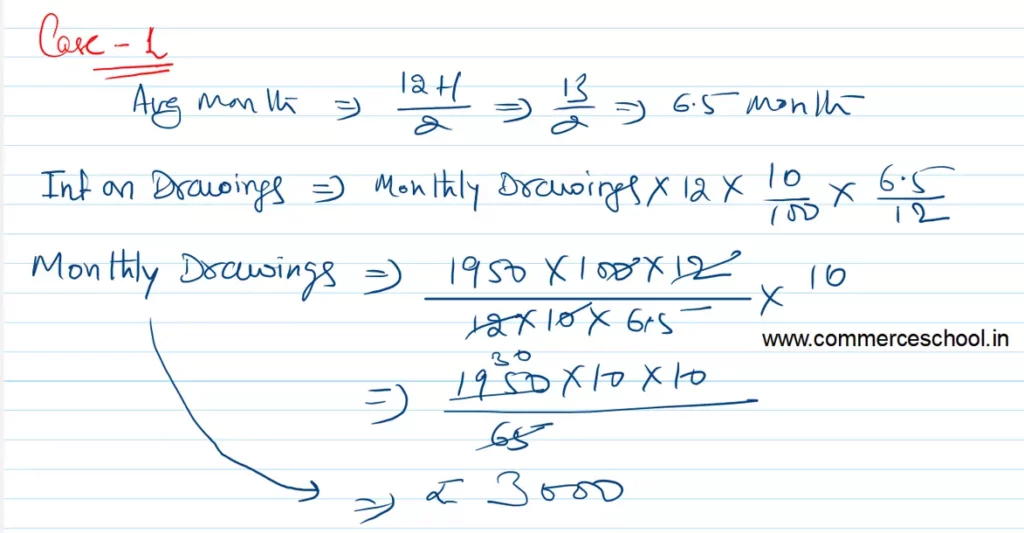 Case - 1
Avg Month ⇒ 12+1/2 ⇒ 13/2 ⇒ 6.5 Month
Int on Drawings ⇒ Monthly Drawings × 12 × 10/100 × 6.5/12
Monthly Drawings ⇒ 1950 × 100 × 12/12 × 10 × 6.5 × 10
www.commerceschool.in
30
⇒ 1950 × 10 × 10/65
⇒ ₹ 3000